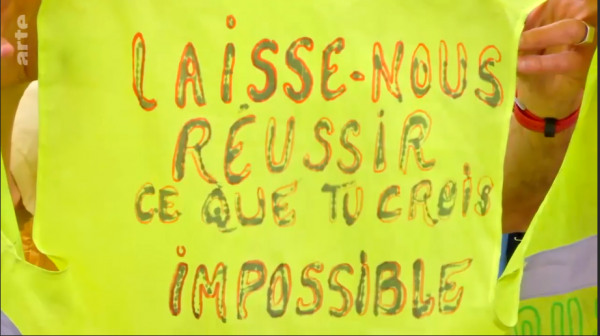 arte
LAISSE-NOUS
RÉUSSIR
CE QUE TU CROIS
IMPOSSIBLE